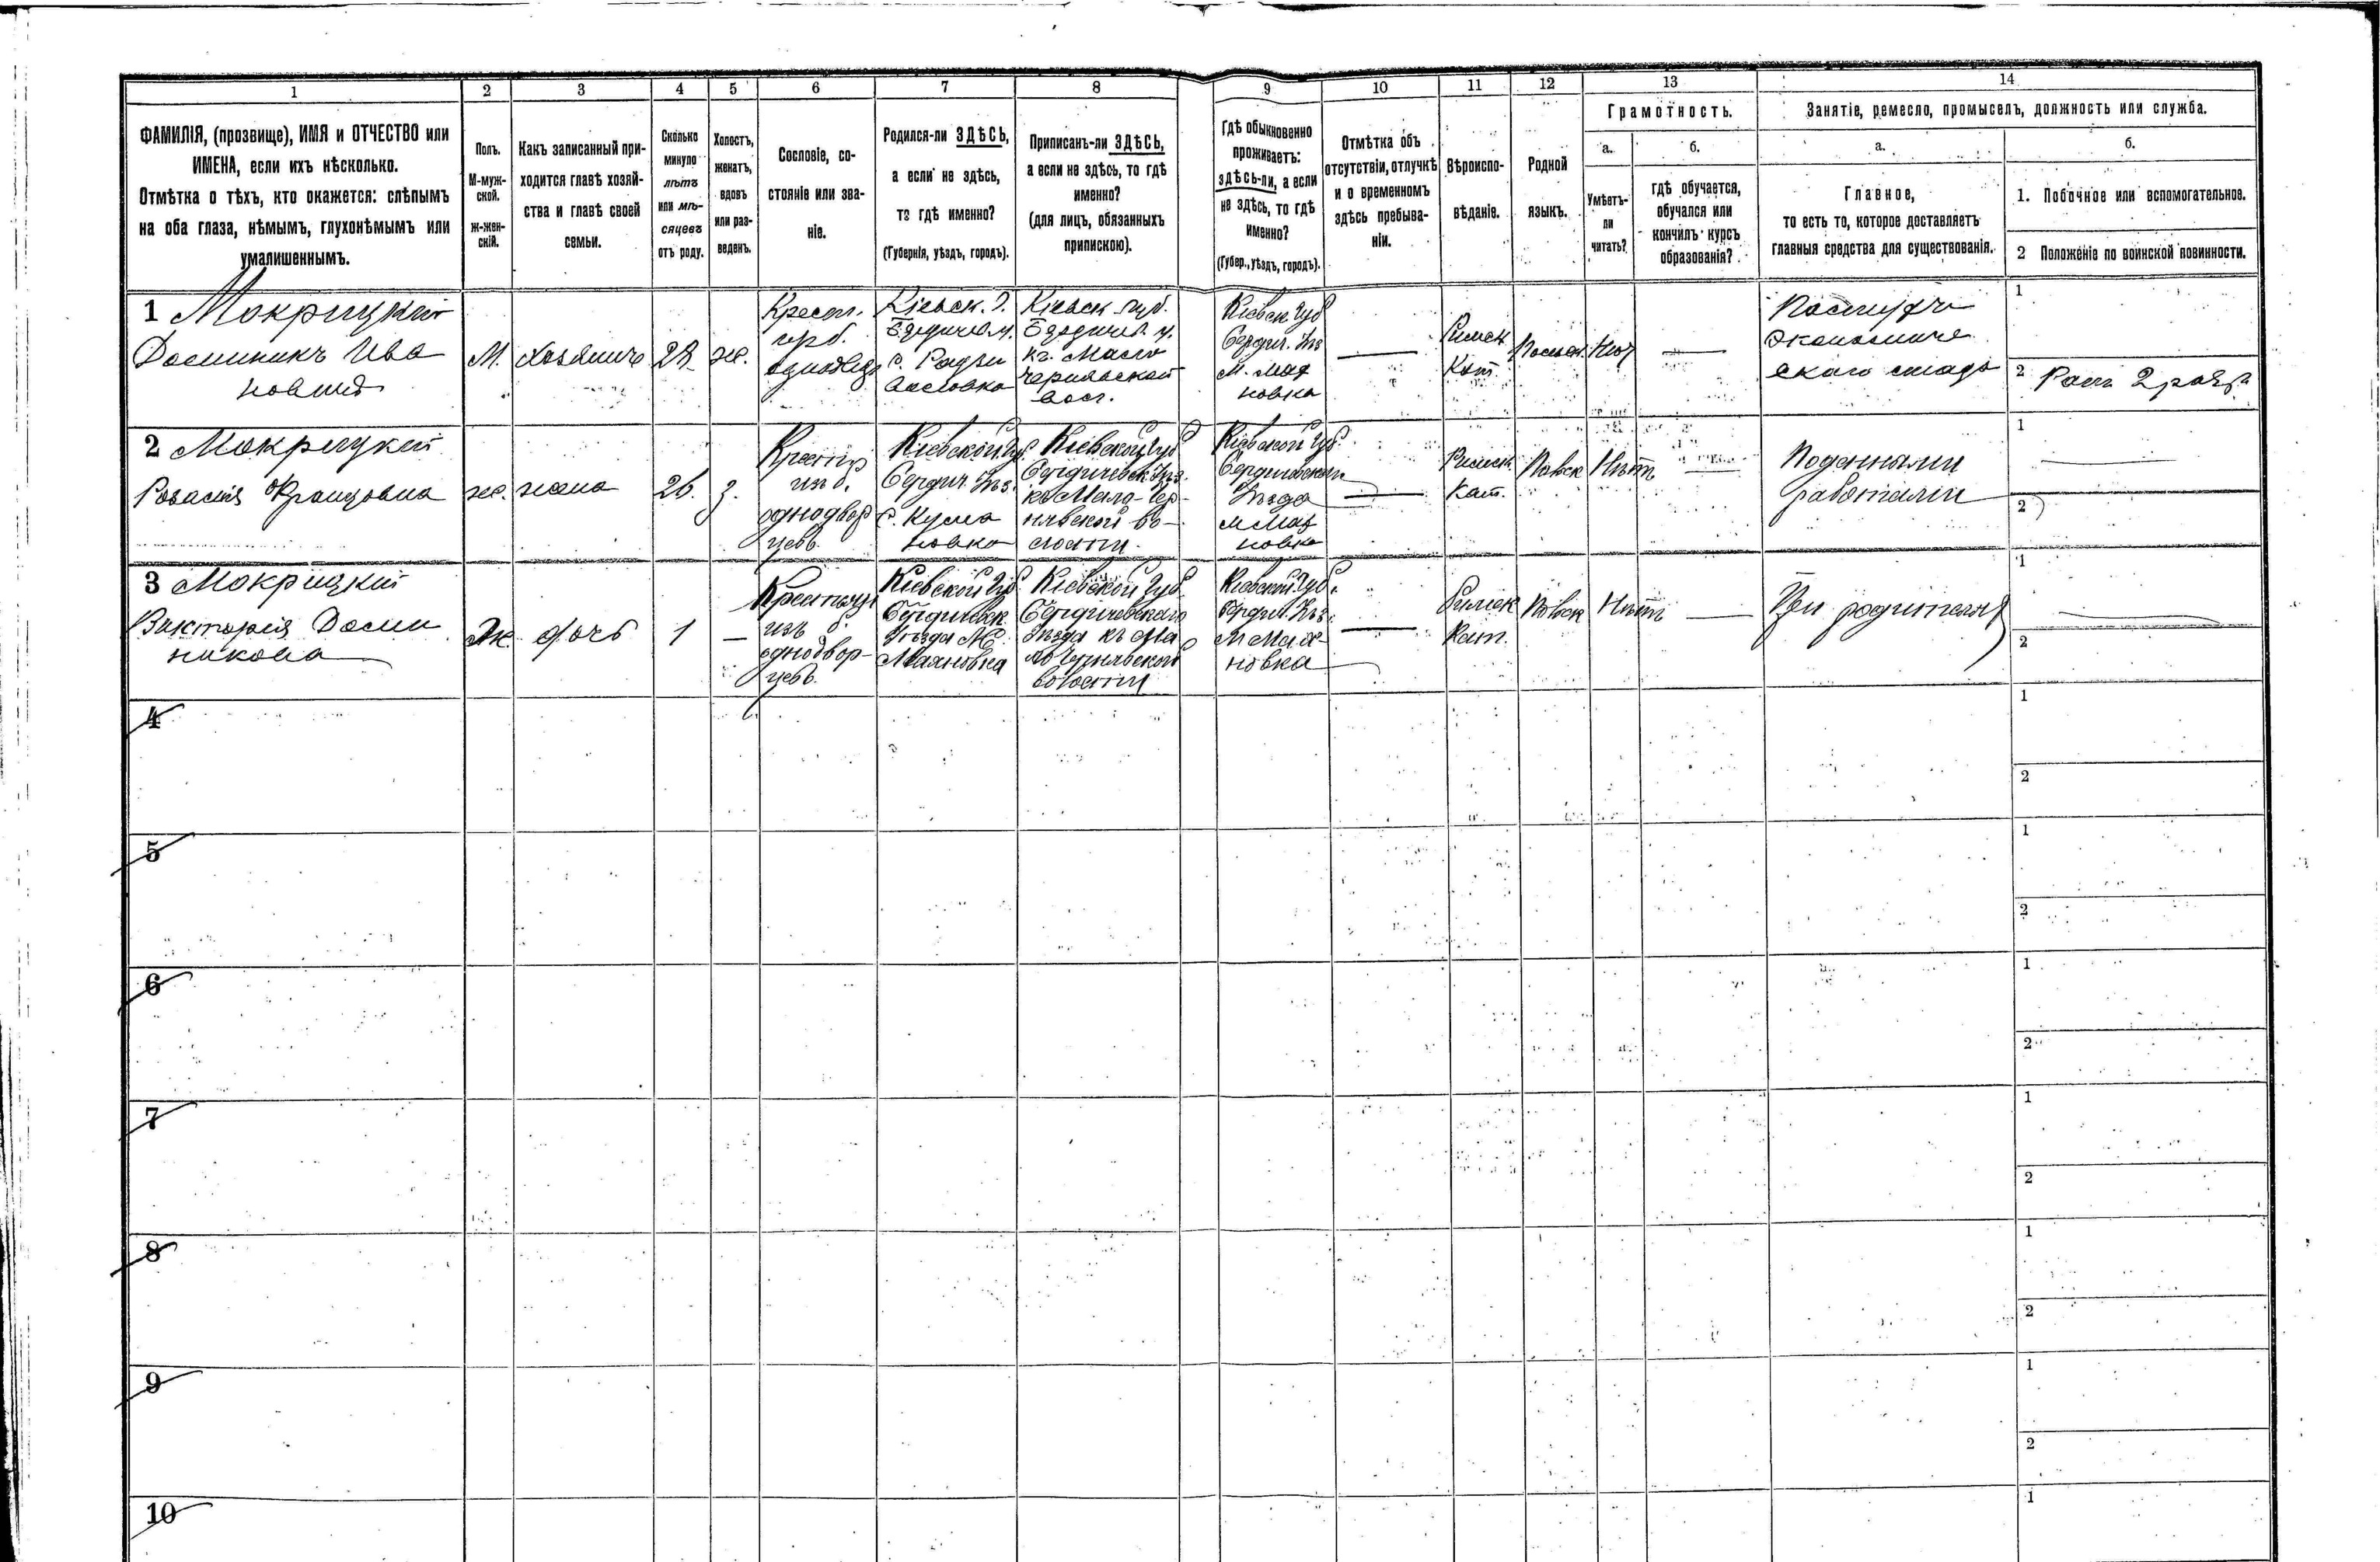 1 2 3 4 5 6 7 8 9 10 11 12 13 14
ФАМИЛІЯ, (прозвище), ИМЯ и ОТЧЕСТВО или
ИМЕНА, если ихъ нѣсколько.
Отмѣтка о тѣхъ, кто окажется: слѣпымъ
на оба глаза, нѣмымъ, глухонѣмымъ или
умалишеннымъ.
Полъ.
М-муж-
ской.
ж-жен-
скій.
Какъ записанный при-
ходится главѣ хозяй-
ства и главѣ своей
семьи.
Сколько
минуло
лѣтъ
или мѣ-
сяцевъ
отъ роду.
Холостъ,
женатъ,
вдовъ
или раз-
веденъ.
Сословіе, со-
стояніе или зва-
ніе.
Родился-ли ЗДѢСЬ,
а если не здѣсь,
то гдѣ именно?
(Губернія, уѣздъ, городъ).
Приписанъ-ли ЗДѢСЬ,
а если не здѣсь, то гдѣ
именно?
(для лицъ, обязанныхъ
припискою).
Гдѣ обыкновенно
проживаетъ:
здѣсь-ли, а если
не здѣсь, то гдѣ
именно?
(Губер., уѣздъ, городъ).
Отмѣтка объ
отсутствіи, отлучкѣ
и о временномъ
здѣсь пребыва-
ніи.
Вѣроиспо-
вѣданіе.
Родной
языкъ.
Грамотность.
а.
Умѣетъ-
ли
читать?
б.
гдѣ обучается,
обучался или
кончилъ курсъ
образованія?
Занятіе, ремесло, промыселъ, должность или служба.
а.
Главное,
то есть то, которое доставляетъ
главныя средства для существованія.
б.
1. Побочное или вспомогательное.
2 Положеніе по воинской повинности.
1 Мокрицкій
Доминикъ Ива
новичъ
М.
хозяинъ
28
ж.
Крест.
Кіевск. г.
Бердичев. у.
Кіевск. губ.
Бердичев. у.
Кіевск губ
Бердич. уѣз
м. Мах
новка
Римск
Кат.
Польск.
Нѣт
Пастухъ
экономиче
скаго стада
1
2 Рат. 2 разр.
2 Мокрицкій
Розалія Францовна
ж.
жена
26.
з.
Крестьр
изъ
однодвор
цевъ.
Кіевской губ
Бердич уѣз.
с. Кума
новка
Кіевской губ
Бердичевск. уѣз.
къ Мало-Чер-
нявской во-
лости.
Кіевской губ.
Бердичевскаго
уѣзда
м Мах
новка
Римск.
Кат.
Польск
Нѣтъ
Поденными
работами
1
2
3 Мокрицкій
Викторія Доми
никова
Ж.
дочь
1
Крестьян
изъ
однодвор-
цевъ.
Кіевской губ
Бердичевск.
уѣзда М.
Махновка
Кіевской губ.
Бердичевскаго
уѣзда къ Ма
ло Чернявской
волости
Кіевской губ.
Бердич. уѣз.
м Мах-
новка
Римск
Кат.
Польск
Нѣтъ
При родителях
1
2
4
1
2
5
1
2
6
1
2
7
1
2
8
1
2
9
1
2
10
1